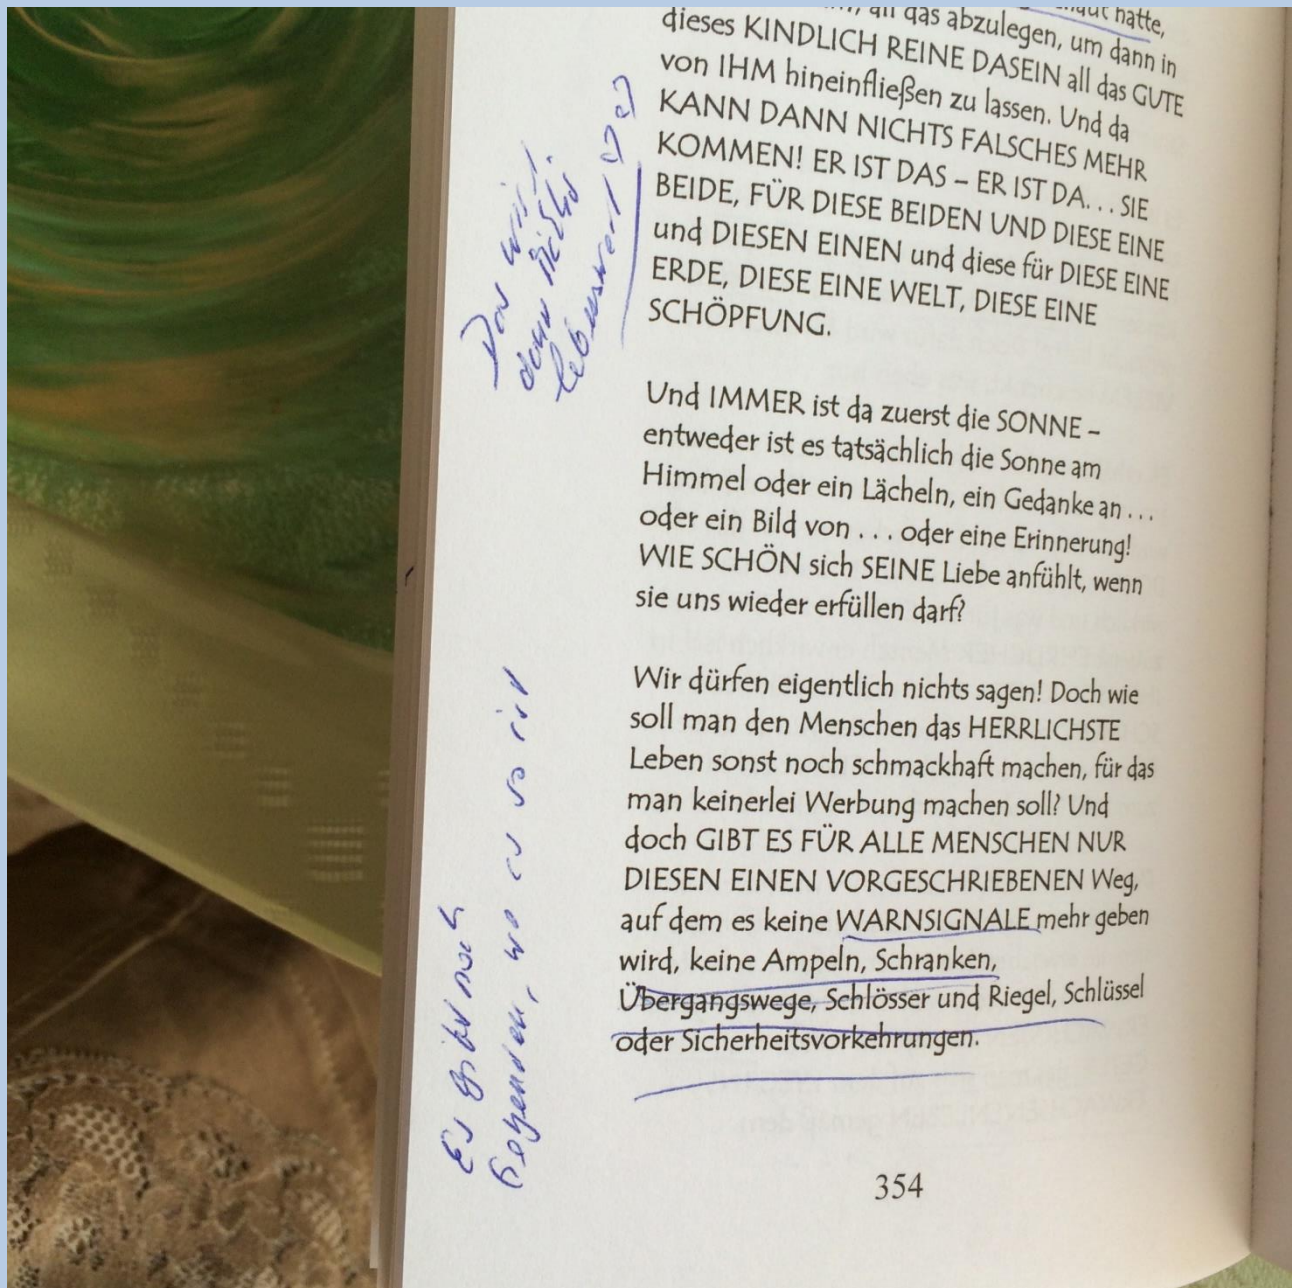 all das abzulegen, um dann in
dieses KINDLICH REINE DASEIN all das GUTE
von IHM hineinfließen zu lassen. Und da
KANN DANN NICHTS FALSCHES MEHR
KOMMEN! ER IST DAS – ER IST DA. . . SIE
BEIDE, FÜR DIESE BEIDEN UND DIESE EINE
und DIESEN EINEN und diese für DIESE EINE
ERDE, DIESE EINE WELT, DIESE EINE
SCHÖPFUNG.
Und IMMER ist da zuerst die SONNE –
entweder ist es tatsächlich die Sonne am
Himmel oder ein Lächeln, ein Gedanke an . . .
oder ein Bild von . . . oder eine Erinnerung!
WIE SCHÖN sich SEINE Liebe anfühlt, wenn
sie uns wieder erfüllen darf?
Wir dürfen eigentlich nichts sagen! Doch wie
soll man den Menschen das HERRLICHSTE
Leben sonst noch schmackhaft machen, für das
man keinerlei Werbung machen soll? Und
doch GIBT ES FÜR ALLE MENSCHEN NUR
DIESEN EINEN VORGESCHRIEBENEN Weg,
auf dem es keine WARNSIGNALE mehr geben
wird, keine Ampeln, Schranken,
Übergangswege, Schlösser und Riegel, Schlüssel
oder Sicherheitsvorkehrungen.
354
dann
lebenswert
Es gibt noch
Gegenden, wo es so ist